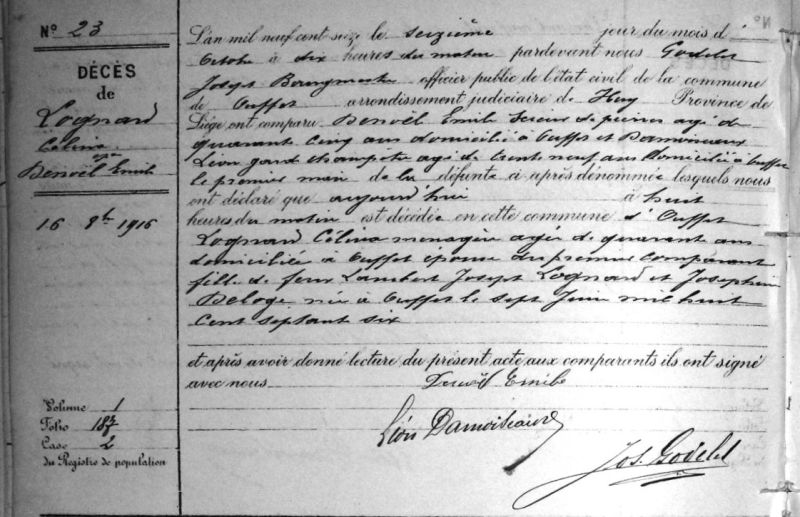 Nº 23
DÉCÈS
de
Lognard
Célina
épse
Benoël Emile
16 8bre 1916
Volume 1
Folio 187
Case 2
du Registre de population
L'an mil neuf cent seize le seizième jour du mois d'
Octobre à dix heures du matin pardevant nous Godelet
Joseph Bourgmestre officier public de l'état civil de la commune
de Ouffet arrondissement judiciaire de Huy Province de
Liége ont comparu Benoël Emile Scieur de pierres agé de
quarante cinq ans domicilié à Ouffet et Damoiseaux
Léon garde champetre agé de trente neuf ans domicilié à Ouffet
le premier mari de la défunte ci après dénommée lesquels nous
ont déclaré que aujourd'hui à huit
heures du matin est décédée en cette commune d'Ouffet
Lognard Célina menagère agée de quarante ans
domiciliée à Ouffet épouse du premier comparant
fille de feux Lambert Joseph Lognard et Josephine
Deloge née à Ouffet le sept Juin mil huit
cent septante six
et après avoir donné lecture du présent acte aux comparants ils ont signé
avec nous Benoël Emile
Léon Damoiseaux
Jos. Godelet